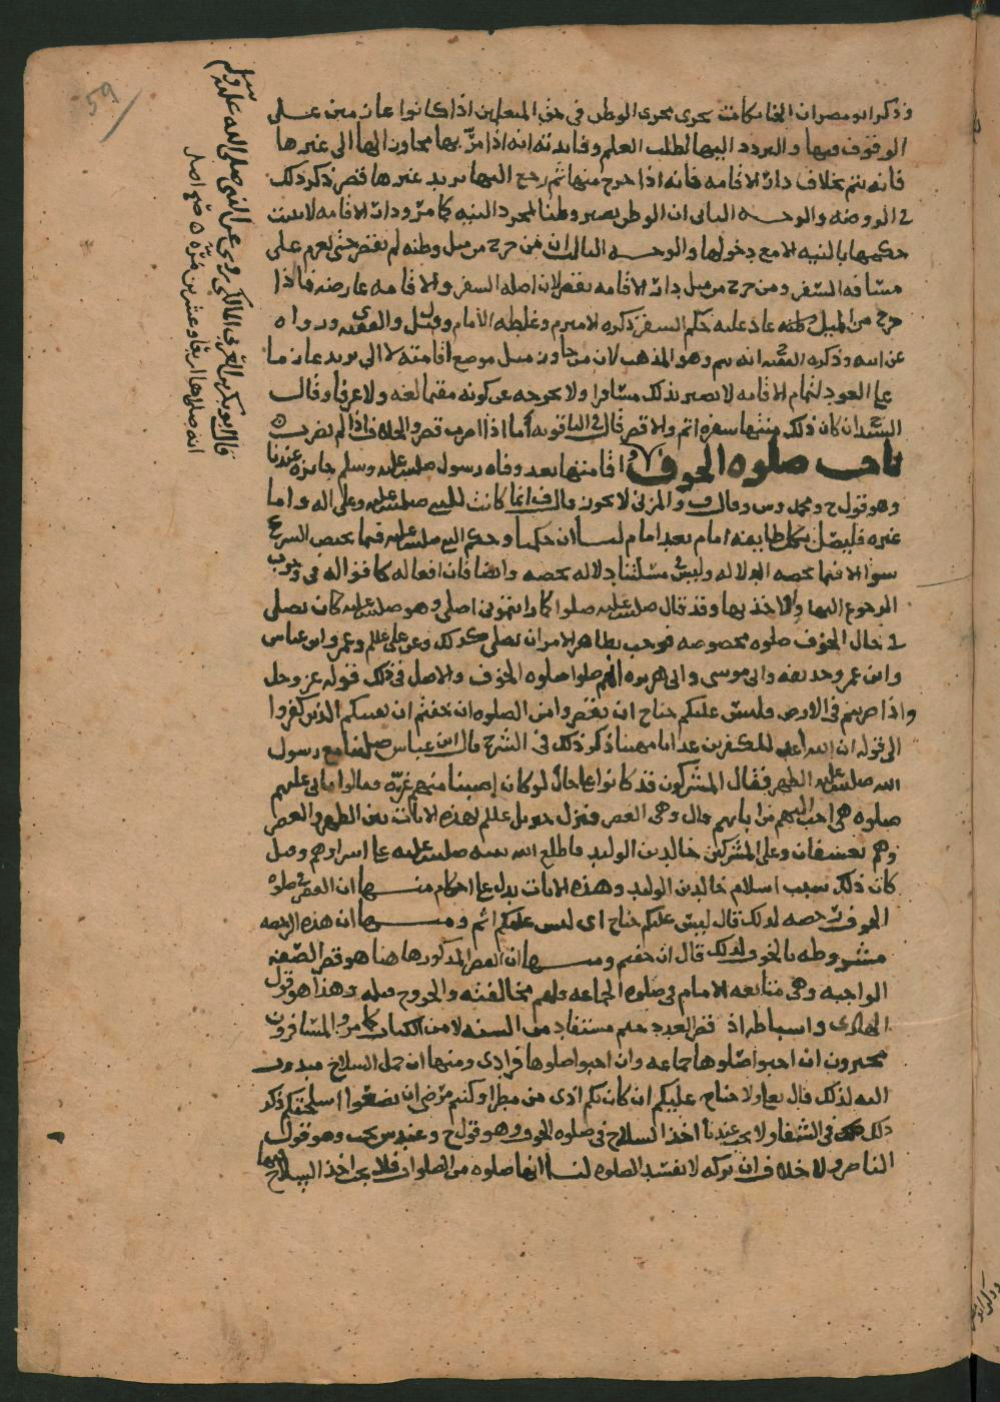 وذكر ابو مضر ان الخانكات تجرى مجرى الوطن فى حق المتعلمين اذا كانوا عازمين على
الوقوف فيها والتردد اليها لطلب العلم وفايدته انه اذا مرّ بها مجاوزا لها الى غيرها
فانه يتم بخلاف دار الاقامه فانه اذا خرج منها ثم رجع اليها يريد غيرها قصر ذكر ذلك
فى الروضه والوجه الثانى ان الوطن يصير وطنا بمجرد النيه كما مرّ ودار الاقامه لا يثبت
حكمها بالنيه الا مع دخولها والوجه الثالث ان من خرج من ميل وطنه لم يقصر حتى يعزم على
مسافه السفر ومن خرج من ميل دار الاقامه يقصر لان اصله السفر والاقامه عارضه فاذا
خرج من الميل عاد عليه حكم السفر ذكره الامير م وغلطه الامام وقيل والفقيه ورواه
عن الله وذكره الفقيه انه يتم وهو المذهب لان من جاوز ميل موضع اقامته لا الى بريد عازما
على العود لتمام الاقامه لا يصير بذلك مسافرا ولا يخرجه عن كونه مقيما لغه ولا عرفا وقال
السيد ان كان ذلك منتها سفره اتم والا قصر قال فى الياقوته أما اذا اضرب قصر والخلاف اذا لم يضرب ه
باب صلوه الخوف اقامتها بعد وفاه رسول صلى الله عليه وسلم جايزه عندنا
وهو قول ح ومحمد وس وقال ف والمزنى لا يجوز وقال ف انما كانت للنبى صلى الله عليه وعلى اله واما
غيره فليصل بكل طايفه امام بعد امام لنا ان حكمنا وحكم النبى صلى الله عليه فيما يخص الشرع
سوا الا فيما خصه الدلاله وليس فى مسئلتنا دلاله تخصه وايضا فان افعاله كاقواله فى وجوب
الرجوع اليها والاخذ بها وقد قال صلى الله عليه صلوا كما رايتمونى اصلى وهو صلى الله عليه كان يصلى
فى حال الخوف صلوه مخصوصه فوجب بظاهر الامر ان نصلى كذلك وعن على علم وعمر وابن عباس
وابن عمر وحذيفه وابى موسى وابى هريره انهم صلوا صلوه الخوف والاصل فى ذلك قوله عز وجل
واذا ضربتم فى الارض فليس عليكم جناح ان تقصروا من الصلوه ان خفتم ان يفتنكم الذين كفروا
الى قوله ان الله اعد للكفرين عذابا مهينا ذكر ذلك فى الشرح قال ابن عباس صلينا مع رسول
الله صلى الله عليه الظهر فقال المشركون قد كانوا على حال لو كان اصبنا منهم غرّه وقالوا ياتى عليهم
صلوه هى احب اليهم من ابايهم قال وهى العصر فنزل جبريل علم بهذه الايات بين الظهر والعصر
وهم بعسفان وعلى المشركين خالد بن الوليد فاطلع الله نبيه صلى الله عليه على اسرارهم وقيل
كان ذلك سبب اسلام خالد بن الوليد وهذه الايات يدل على احكام منها ان القصر فى صلوه
الخوف رخصه لذلك قال ليس عليكم جناح اى ليس عليكم اثم ومنها ان هذه الرخصه
مشروطه بالخوف لذلك قال ان خفتم ومنها ان القصر المذكور ها هنا هو قصر الصفه
الواجبه وهى متابعه الامام فى صلوه الجماعه فلهم مخالفته والخروج قبله وهذا هو قول
الهادى واسباطه اذ قصر العدد حكم مستفاد من السنه لا من الكتاب كما مرّ والمسافرون
مخيرون ان احبوا صلوها جماعه وان احبوا صلوها فرادى ومنها ان حمل السلاح مندوب
اليه لذلك قال تعالى ولا جناح عليكم ان كان بكم اذى من مطر او كنتم مرضى ان تضعوا اسلحتكم ذكر
ذلك فى الشفا ولا يجب عندنا اخذ السلاح فى صلوه الخوف وهو قول ح وعند س يجب وهو قول
الناصر ولا خلاف ان تركه لا يفسد الصلوه لنا انها صلوه من الصلوات فلا يجب اخذ السلاح فيها
قال ابو بكر بن العربى المالكى روى عن النبى صلى الله عليه وسلم
انه صلاها اربعا وعشرين مرّة ه صح اصل
59